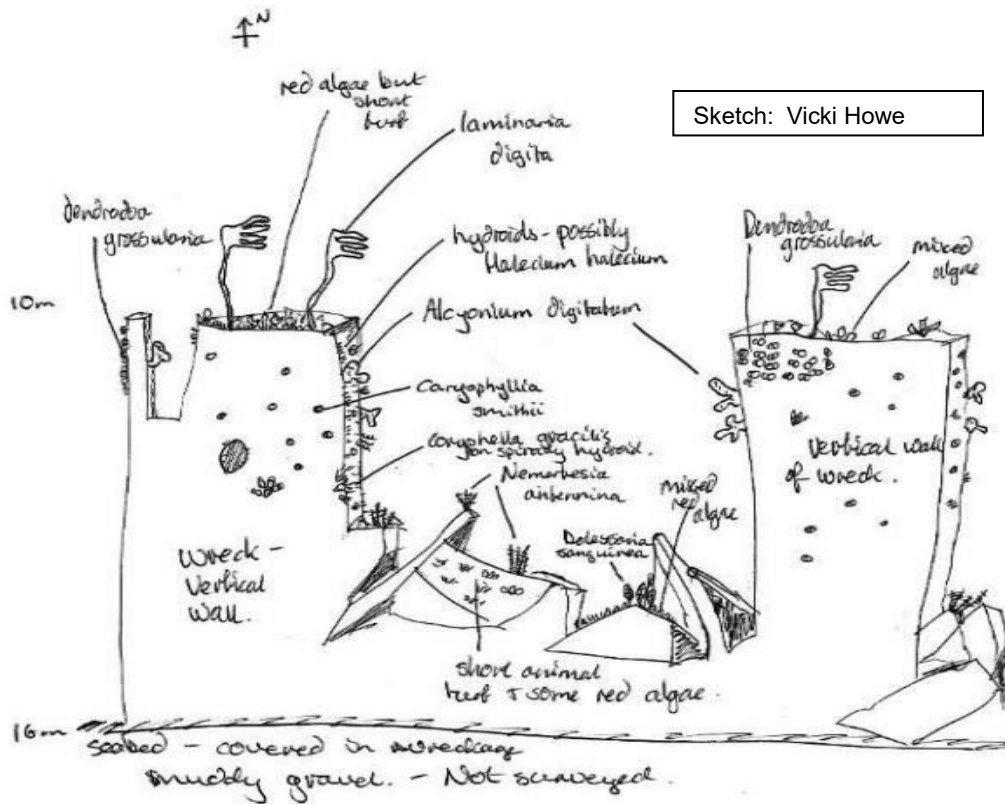 N
red algae but
short
turf
Sketch: Vicki Howe
laminaria
digita
dendrodoa
grossularia
hydroids - possibly
Halecium halecium
Dendrodoa
grossularia
mixed
algae
10m
Alcyonium digitatum
Caryophyllia
smithii
Coryphella gracilis
on spirally hydroid.
Nemertesia
antennina
mixed
red
algae
Vertical wall
of wreck.
Delesseria
sanguinea
Wreck -
Vertical
Wall.
short animal
turf + some red algae.
16m
seabed - covered in wreckage
muddy gravel. - Not surveyed.